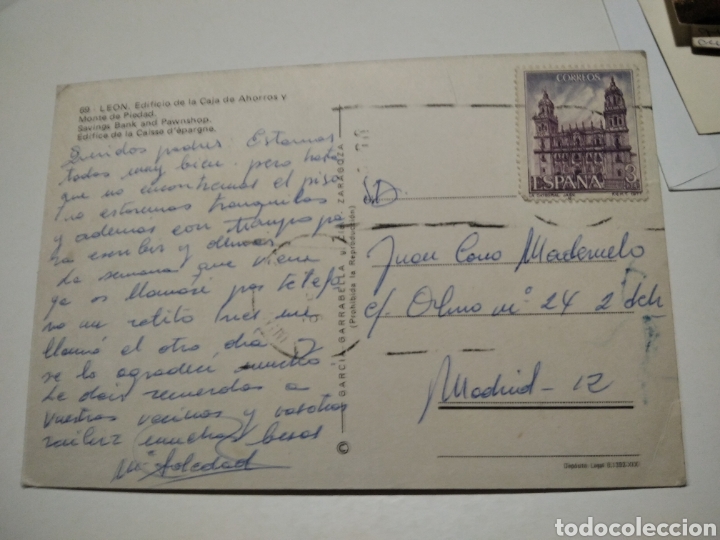 69 - LEON. Edificio de la Caja de Ahorros y
Monte de Piedad.
Savings Bank and Pawnshop.
Edifice de la Caisse d'épargne.
Queridos padres: Estamos
todos muy bien pero hasta
que no encontremos el piso
no estaremos tranquilos
y ademas con tiempo pa
ra escribir y demas.
La semana que viene
ya os llamaré por telefo
no un ratito
llamó el otro dia
se lo agradecí mucho
Le dais recuerdos a
vuestros vecinos y vosotros
recibir muchos besos
Mª Soledad
© GARCIA GARRABELLA y Cía. ZARAGOZA
(Prohibida la Reproducción)
CORREOS
ESPAÑA 3
Juan Cano Maderuelo
c/. Olmo nº 24 2 dch
Madrid - 12
Depósito Legal B.
todocoleccion